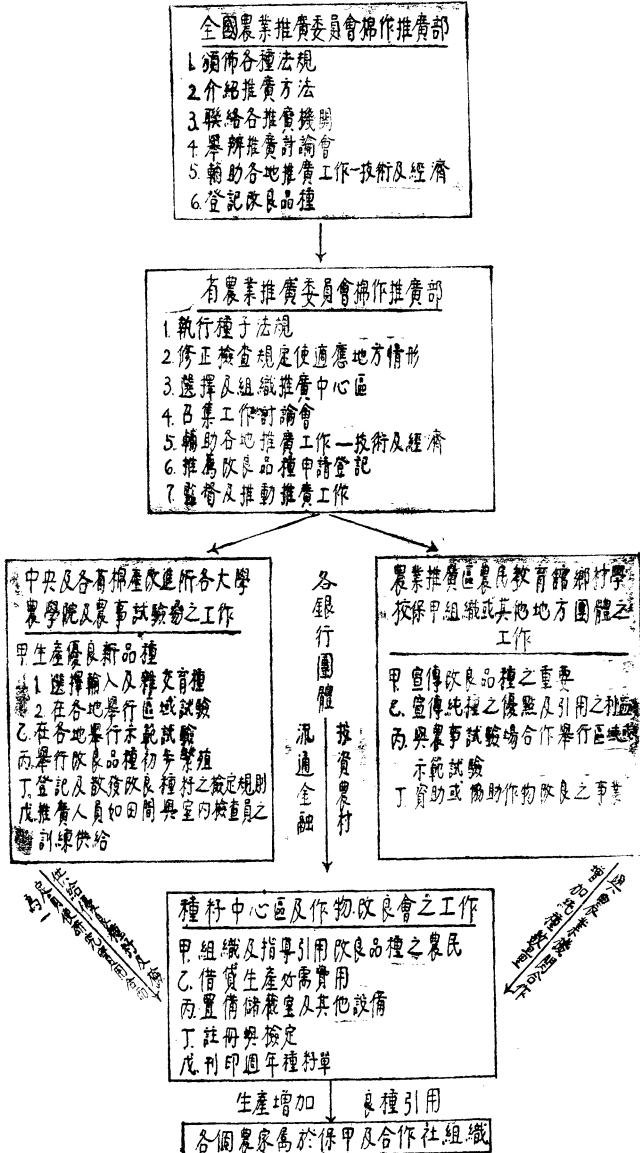 全國農業推廣委員會棉作推廣部
1. 頒佈各種法規
2. 介紹推廣方法
3. 聯絡各推廣機關
4. 舉辦推廣討論會
5. 輔助各地推廣工作—技術及經濟
6. 登記改良品種
省農業推廣委員會棉作推廣部
1. 執行種子法規
2. 修正檢查規定使適應地方情形
3. 選擇及組織推廣中心區
4. 召集工作討論會
5. 輔助各地推廣工作—技術及經濟
6. 推薦改良品種申請登記
7. 監督及推動推廣工作
中央及各省棉產改進所各大學
農學院及農事試驗場之工作
甲. 生產優良新品種
1. 選擇輸入及雜交育種
2. 在各地舉行區域試驗
乙. 在各地舉行示範試驗
丙. 舉行改良品種初步繁殖
丁. 登記及散發改良種籽之檢定規則
戊. 推廣人員如田間與室內檢查員之
訓練供給
各銀行團體
流通金融
投資農村
農業推廣區農民教育館鄉村學
校保甲組織或其他地方團體之
工作
甲. 宣傳改良品種之重要
乙. 宣傳純種之優點及引用之利益
丙. 與農事試驗場合作舉行區域
示範試驗
丁. 資助或協助作物改良之事業
供給優良種籽及
為一
與農業機關合作
增加純種數量
種籽中心區及作物改良會之工作
甲. 組織及指導引用改良品種之農民
乙. 借貸生產所需費用
丙. 置備儲藏室及其他設備
丁. 註冊與檢定
戊. 刊印週年種籽單
生產增加 良種引用
各個農家屬於保甲及合作社組織